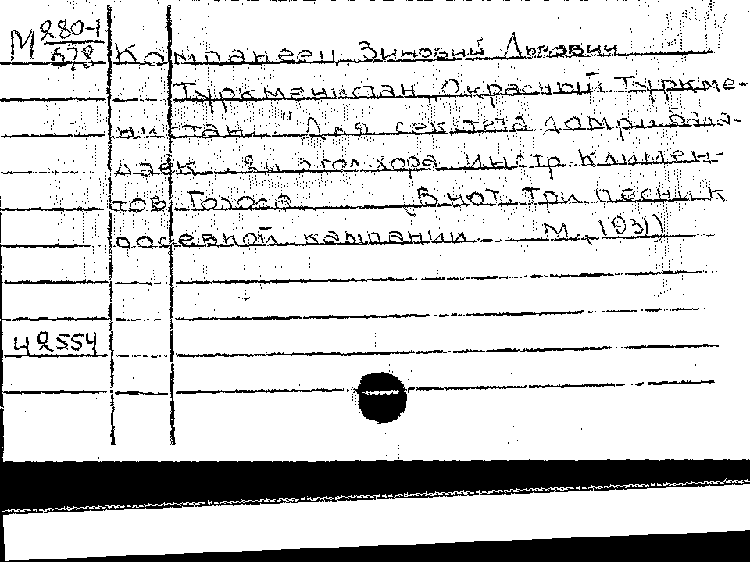 М 280-1
678
Компанеец Зиновий Львович
Туркменистан О красный Туркме-
нистан. Для секстета домр и бала-
лаек хора Инстр. Климен-
тов. Голоса В нот. Три песни к
посевной кампании М., 1931)
42554